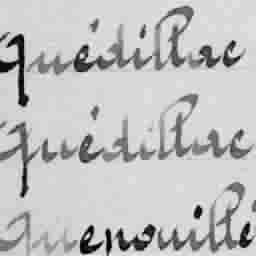 Quédillac
Quédillac
Quenouillé